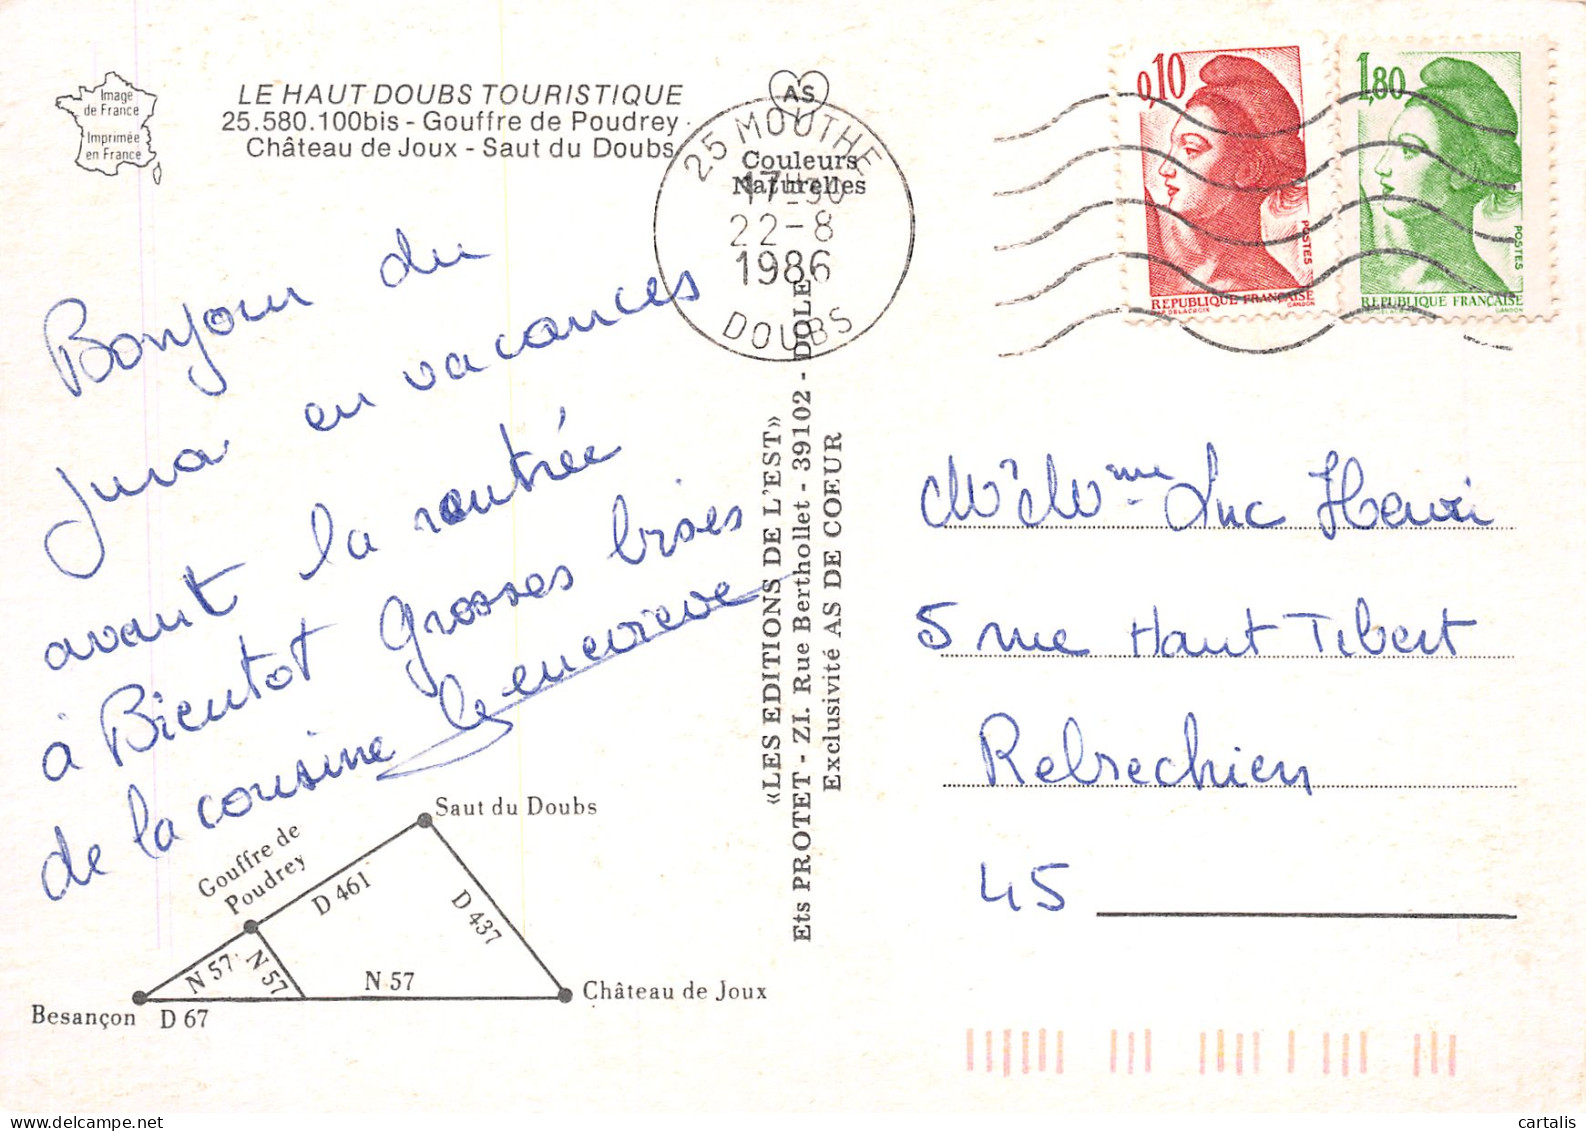 Image
de France
Imprimée
en France
LE HAUT DOUBS TOURISTIQUE
25.580.100bis - Gouffre de Poudrey -
Château de Joux - Saut du Doubs
AS
Couleurs
Naturelles
25 MOUTHE
17H30
22-8
1986
DOUBS
0,10
POSTES
REPUBLIQUE FRANÇAISE
1,80
POSTES
REPUBLIQUE FRANÇAISE
GANDON
Bonjour du
Jura en vacances
avant la rentrée
à Bientot Grosses bises
de la cousine Genevieve
«LES EDITIONS DE L'EST»
Ets PROTET - ZI. Rue Berthollet - 39102 - DOLE
Exclusivité AS DE COEUR
Mr Mme Luc Henri
5 rue Haut Tibert
Rebrechien
45
Saut du Doubs
Gouffre de
Poudrey
D 461
D 437
N 57
N 57
N 57
Château de Joux
Besançon
D 67
cartalis